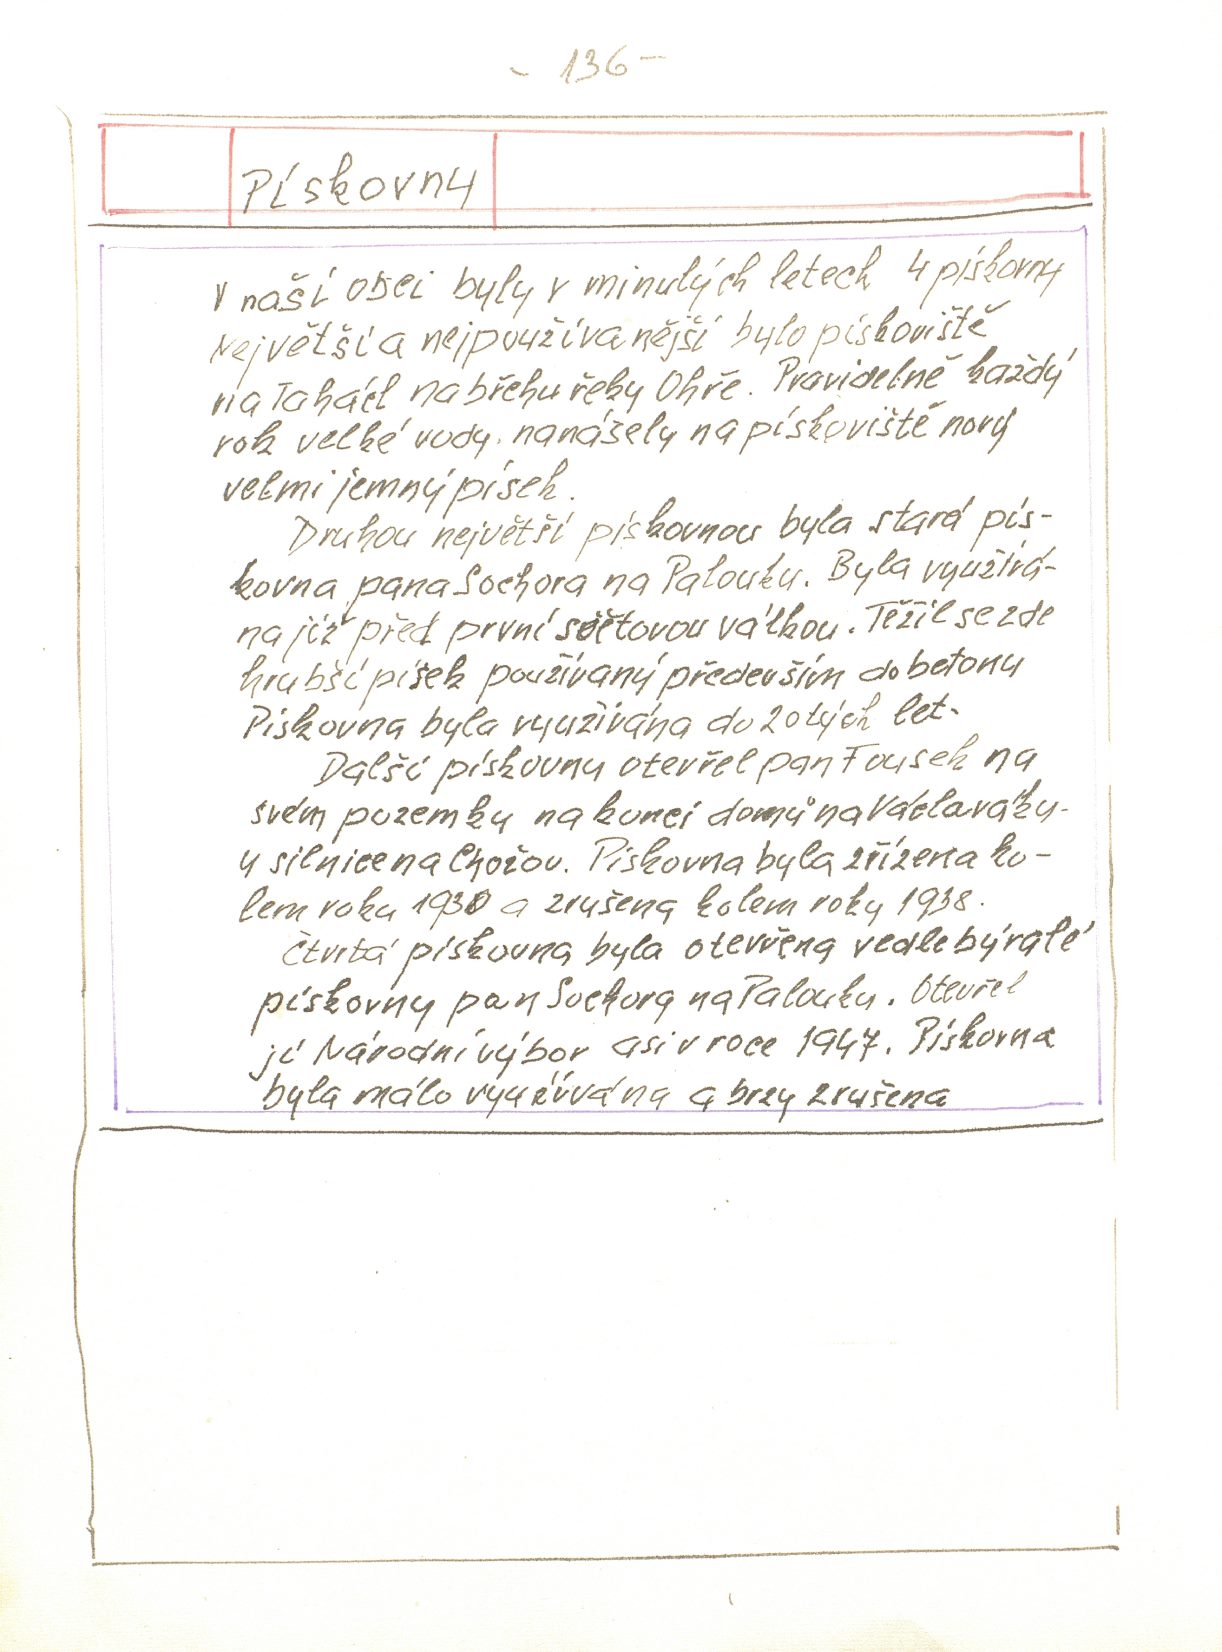 - 136 -
Pískovny
V naší obci byly v minulých letech 4 pískovny
Největší a nejpoužívanější bylo pískoviště
na Taháčl na břehu řeky Ohře. Pravidelně každý
rok velké vody nanášely na pískoviště nový
velmi jemný písek.
Druhou největší pískovnou byla stará pís-
kovna pana Sochora na Palouku. Byla využívá-
na již před první světovou válkou. Těžil se zde
hrubší písek používaný především do betonu
Pískovna byla využívána do 20tých let.
Další pískovnu otevřel pan Fousek na
svém pozemku na konci domů na Václaváku
u silnice na Chožov. Pískovna byla zřízena ko-
lem roku 1930 a zrušena kolem roku 1938.
Čtvrtá pískovna byla otevřena vedle bývalé
pískovny pan Sochora na Palouku. Otevřel
jí Národní výbor asi v roce 1947. Pískovna
byla málo využívána a brzy zrušena